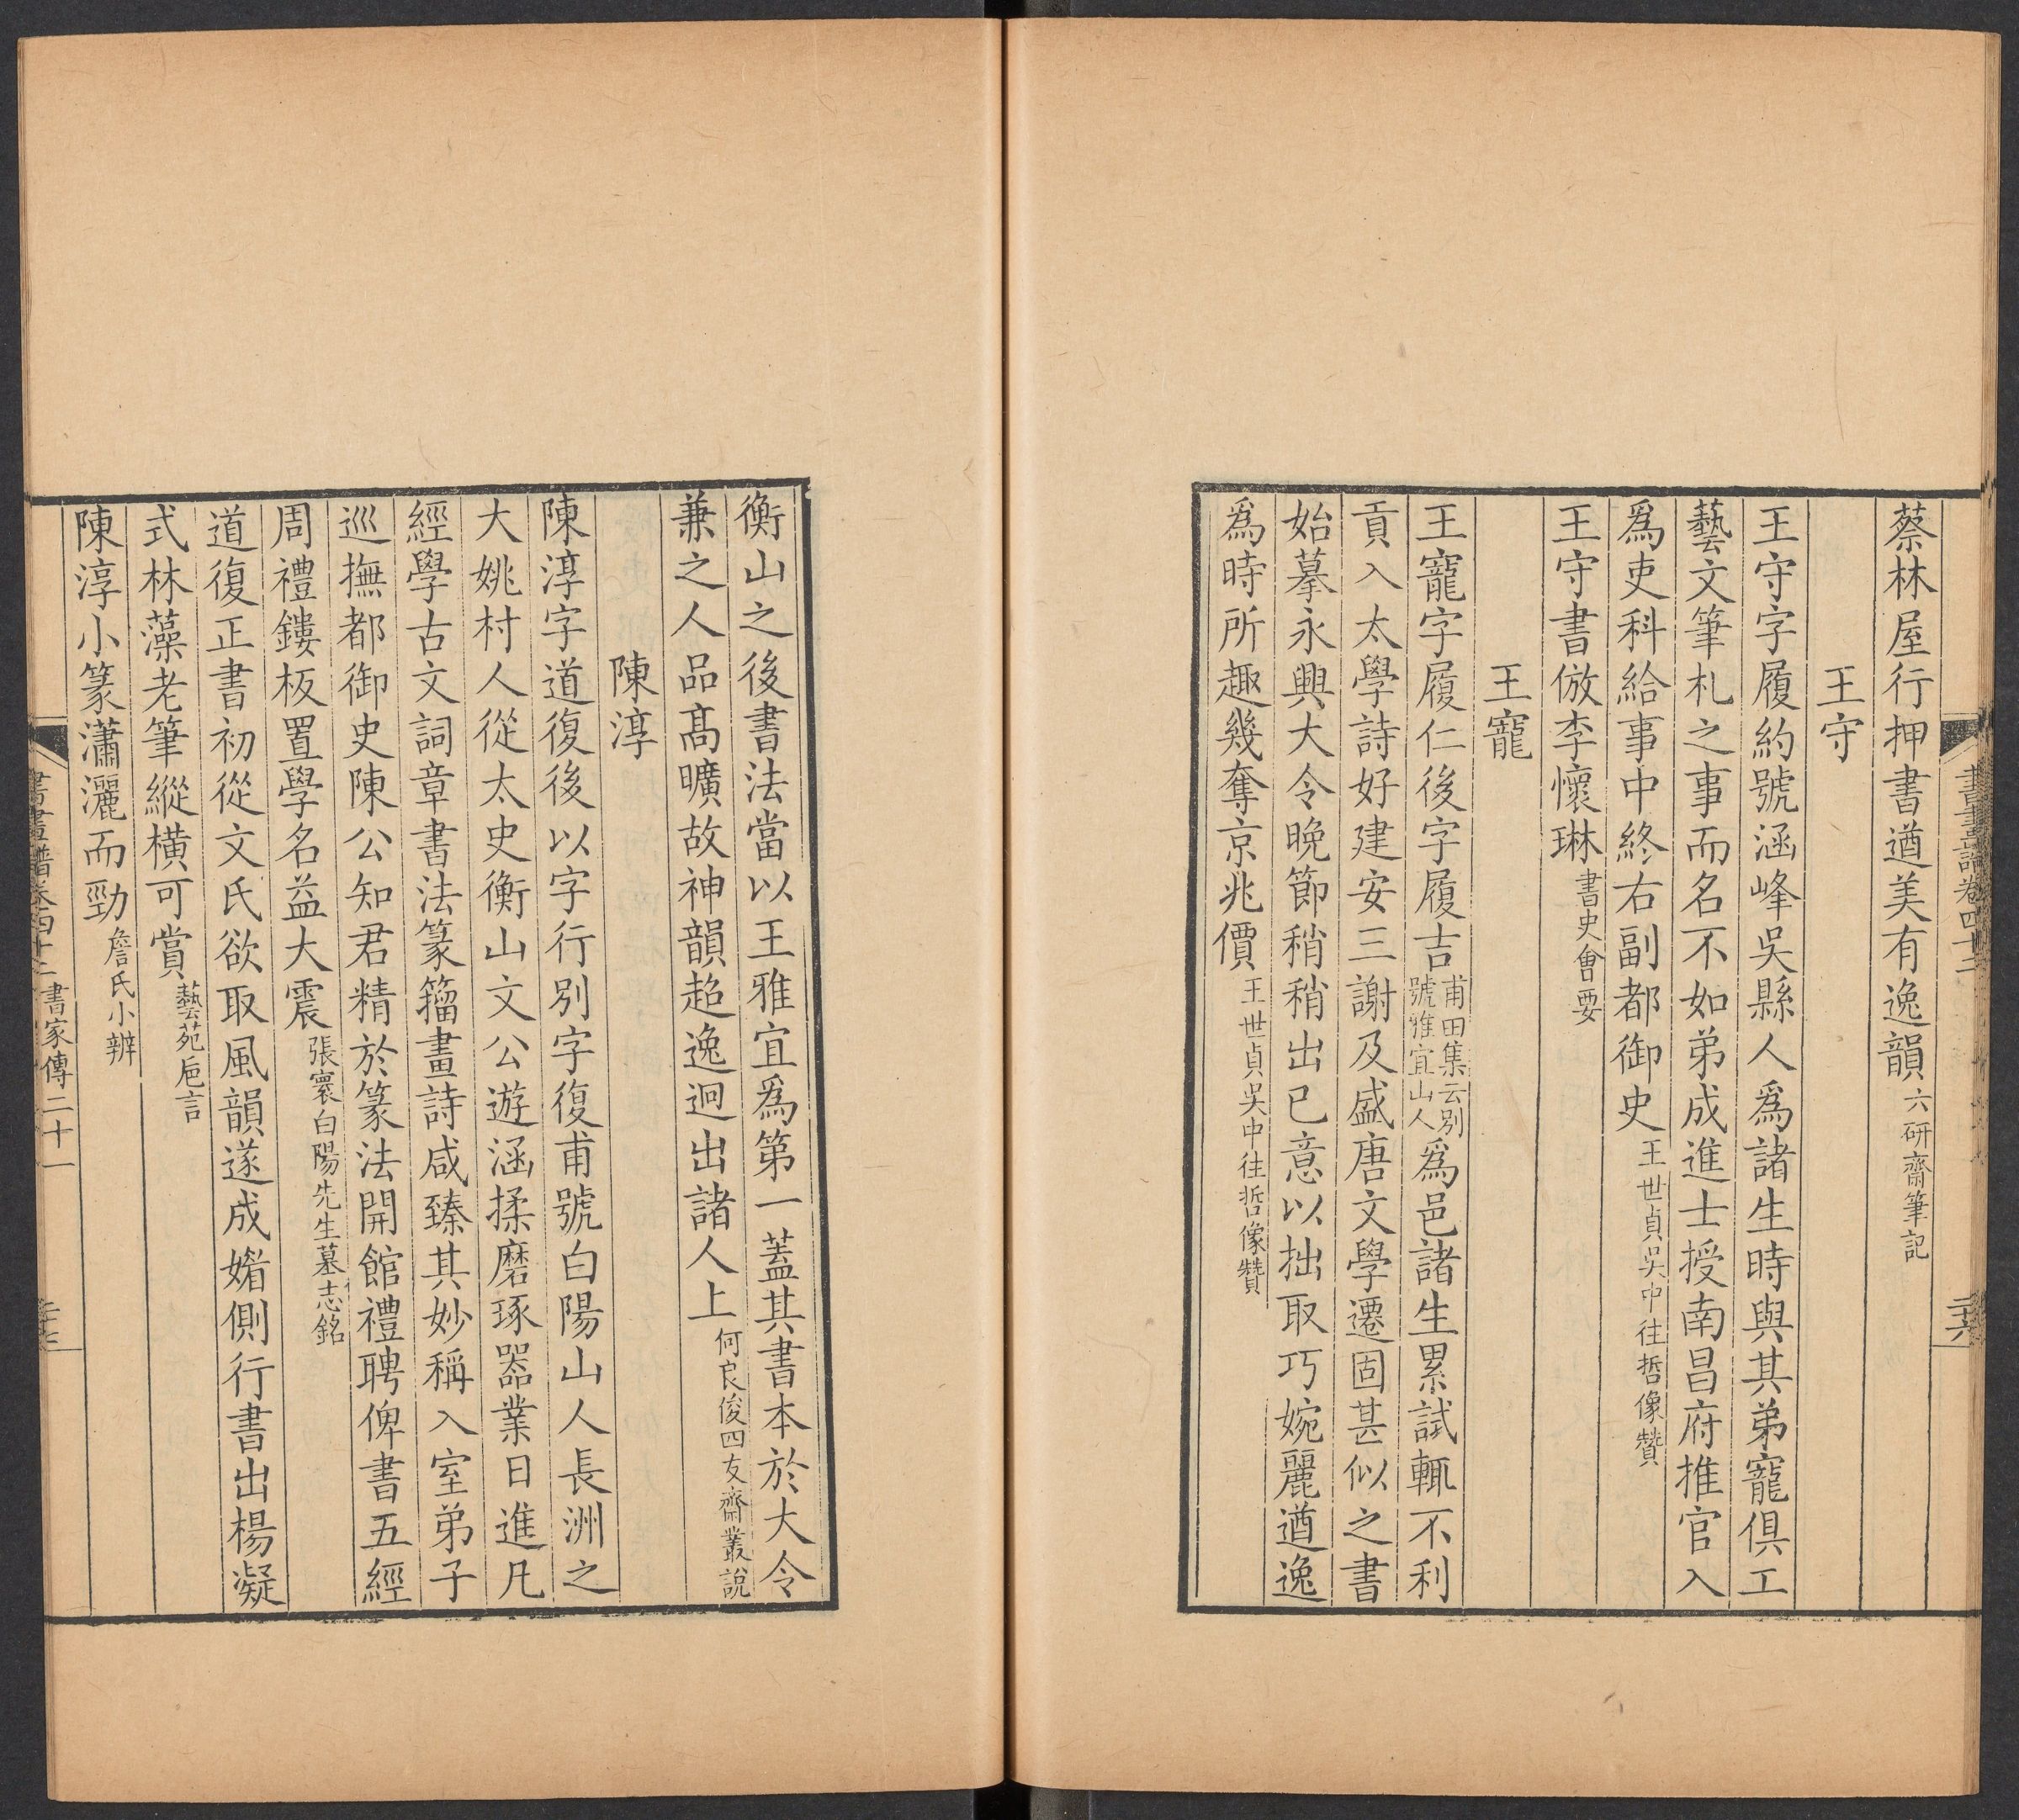 書畫譜卷四十二
二十六
蔡林屋行押書遒美有逸韻六研齋筆記
王守
王守字履約號涵峰吳縣人爲諸生時與其弟寵俱工
藝文筆札之事而名不如弟成進士授南昌府推官入
爲吏科給事中終右副都御史王世貞吳中往哲像贊
王守書倣李懷琳書史會要
王寵
王寵字履仁後字履吉甫田集云別號雅宜山人爲邑諸生累試輒不利
貢入太學詩好建安三謝及盛唐文學遷固甚似之書
始摹永興大令晚節稍稍出已意以拙取巧婉麗遒逸
爲時所趣幾奪京兆價王世貞吳中往哲像贊
衡山之後書法當以王雅宜爲第一蓋其書本於大令
兼之人品高曠故神韻超逸迥出諸人上何良俊四友齋叢說
陳淳
陳淳字道復後以字行別字復甫號白陽山人長洲之
大姚村人從太史衡山文公遊涵揉磨琢器業日進凡
經學古文詞章書法篆籀畫詩咸臻其妙稱入室弟子
巡撫都御史陳公知君精於篆法開館禮聘俾書五經
周禮鏤板置學名益大震張寰白陽先生墓志銘
道復正書初從文氏欲取風韻遂成媚側行書出楊凝
式林藻老筆縱橫可賞藝苑巵言
陳淳小篆瀟灑而勁詹氏小辨
書畫譜卷四十二 書家傳二十一
二十七